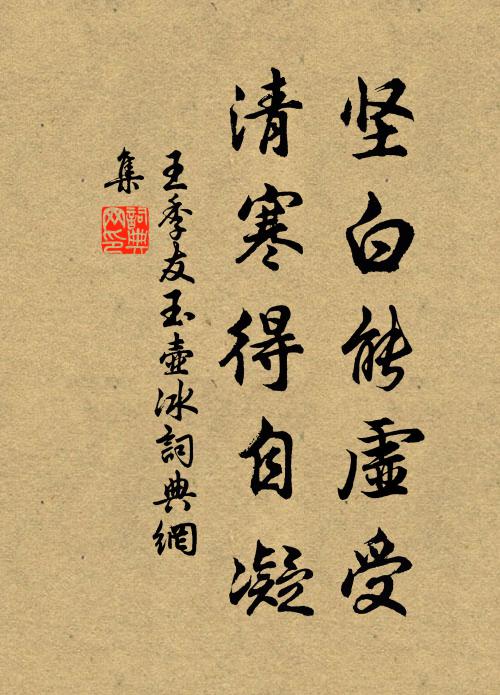 坚白能虚受
清寒得自凝
王季友玉壶冰詞典網
集
詞典
网印